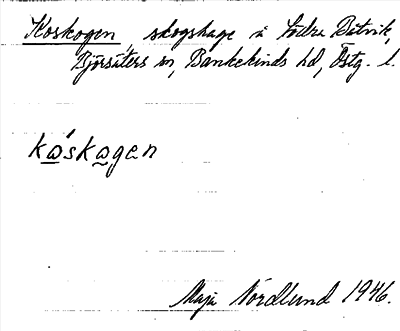 Koskogen, skogshage å Södra Båtvik,
Björsäters sn, Bankekinds hd, Östg. l.
kǿskogen
Maja Nordlund 1946.